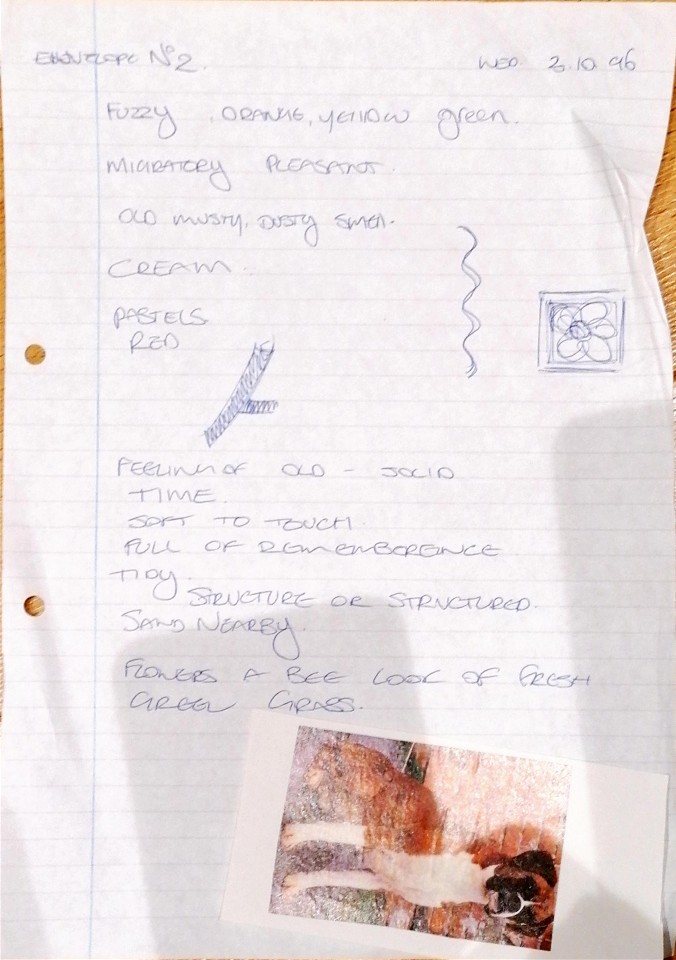 ENVELOPE Nº2.
WED 2.10.96
FUZZY, ORANGE, YELLOW green.
MIGRATORY PLEASANT.
OLD MUSTY, DUSTY SMELL.
CREAM.
PASTELS
RED
FEELING OF OLD - SOLID
TIME.
SOFT TO TOUCH.
FULL OF REMEMBEREINCE
TIDY.
STRUCTURE OR STRUCTURED.
SAND NEARBY.
FLOWERS A BEE LOOK OF FRESH
GREEN GRASS.